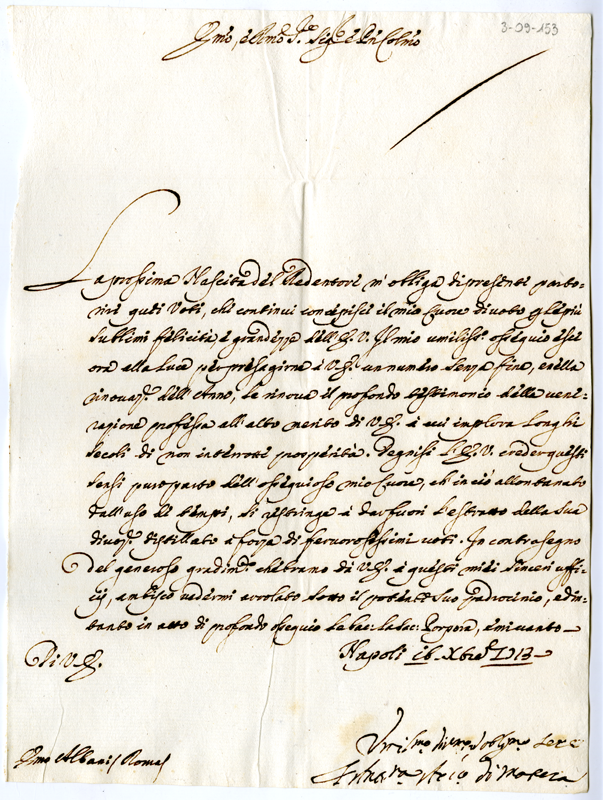 3-09-153
Emo, e Rmo Sr. Sigr. e Prn Colmo
La prossima Nascita del Redentore m'obliga di presenti parto-
rire quei Voti, che continui concepisce il mio Cuore divoto p le più
sublimi felicità e grandezze dell'E. V. Il mio umiliss: ossequio esce
ora alla Luce per presagirne à V.E. un numero senza fine, e nella
rinovaz. dell'Anno, Le rinova il profondo testimonio della vene-
razione professa all'alto merito di V.E. à cui implora Longhi
secoli di non interrotte prosperità. Degnisi L'E.V. creder questi
sensi puro parto dell'ossequioso mio Cuore, ch'in ciò allontanato
dall'uso de tempi, si restringe à dar fuori L'estratto della sua
divoz. distillato à forza di fervorosissimi voti. In contrasegno
del generoso gradim. che trano da V.E. à questi miei sinceri uffi-
cij, ambisco vedermi arrolato sotto il potente suo Padrocinio, ed in-
tanto in atto di profondo ossequio Le bac: La Sac: Porpora, e mi vanto
Di V.E.
Napoli 16 Xbre 1713
Emo Albani Roma
Umo. divmo. ed oblgmo. Serre
di Matera